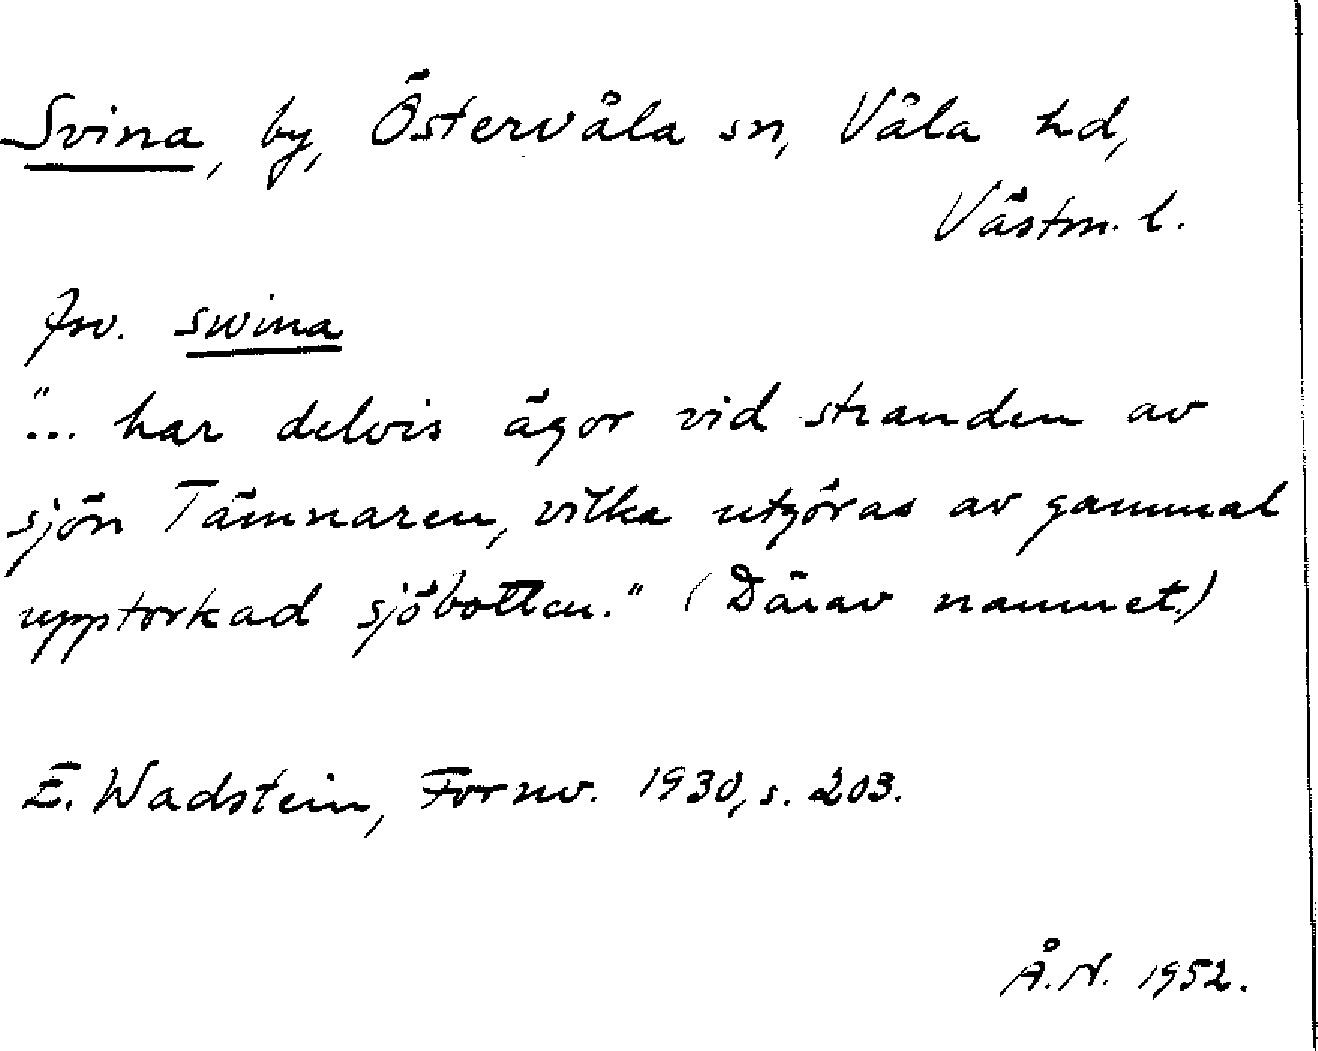 Svina, by, Östervåla sn, Våla hd,
Västm. l.
fsv. swina
"... har delvis ägor vid stranden av
sjön Tämnaren, vilka utgöras av gammal
upptorkad sjöbotten." (Därav namnet.)
E. Wadstein, Fornv. 1930, s. 203.
Å.N. 1952.